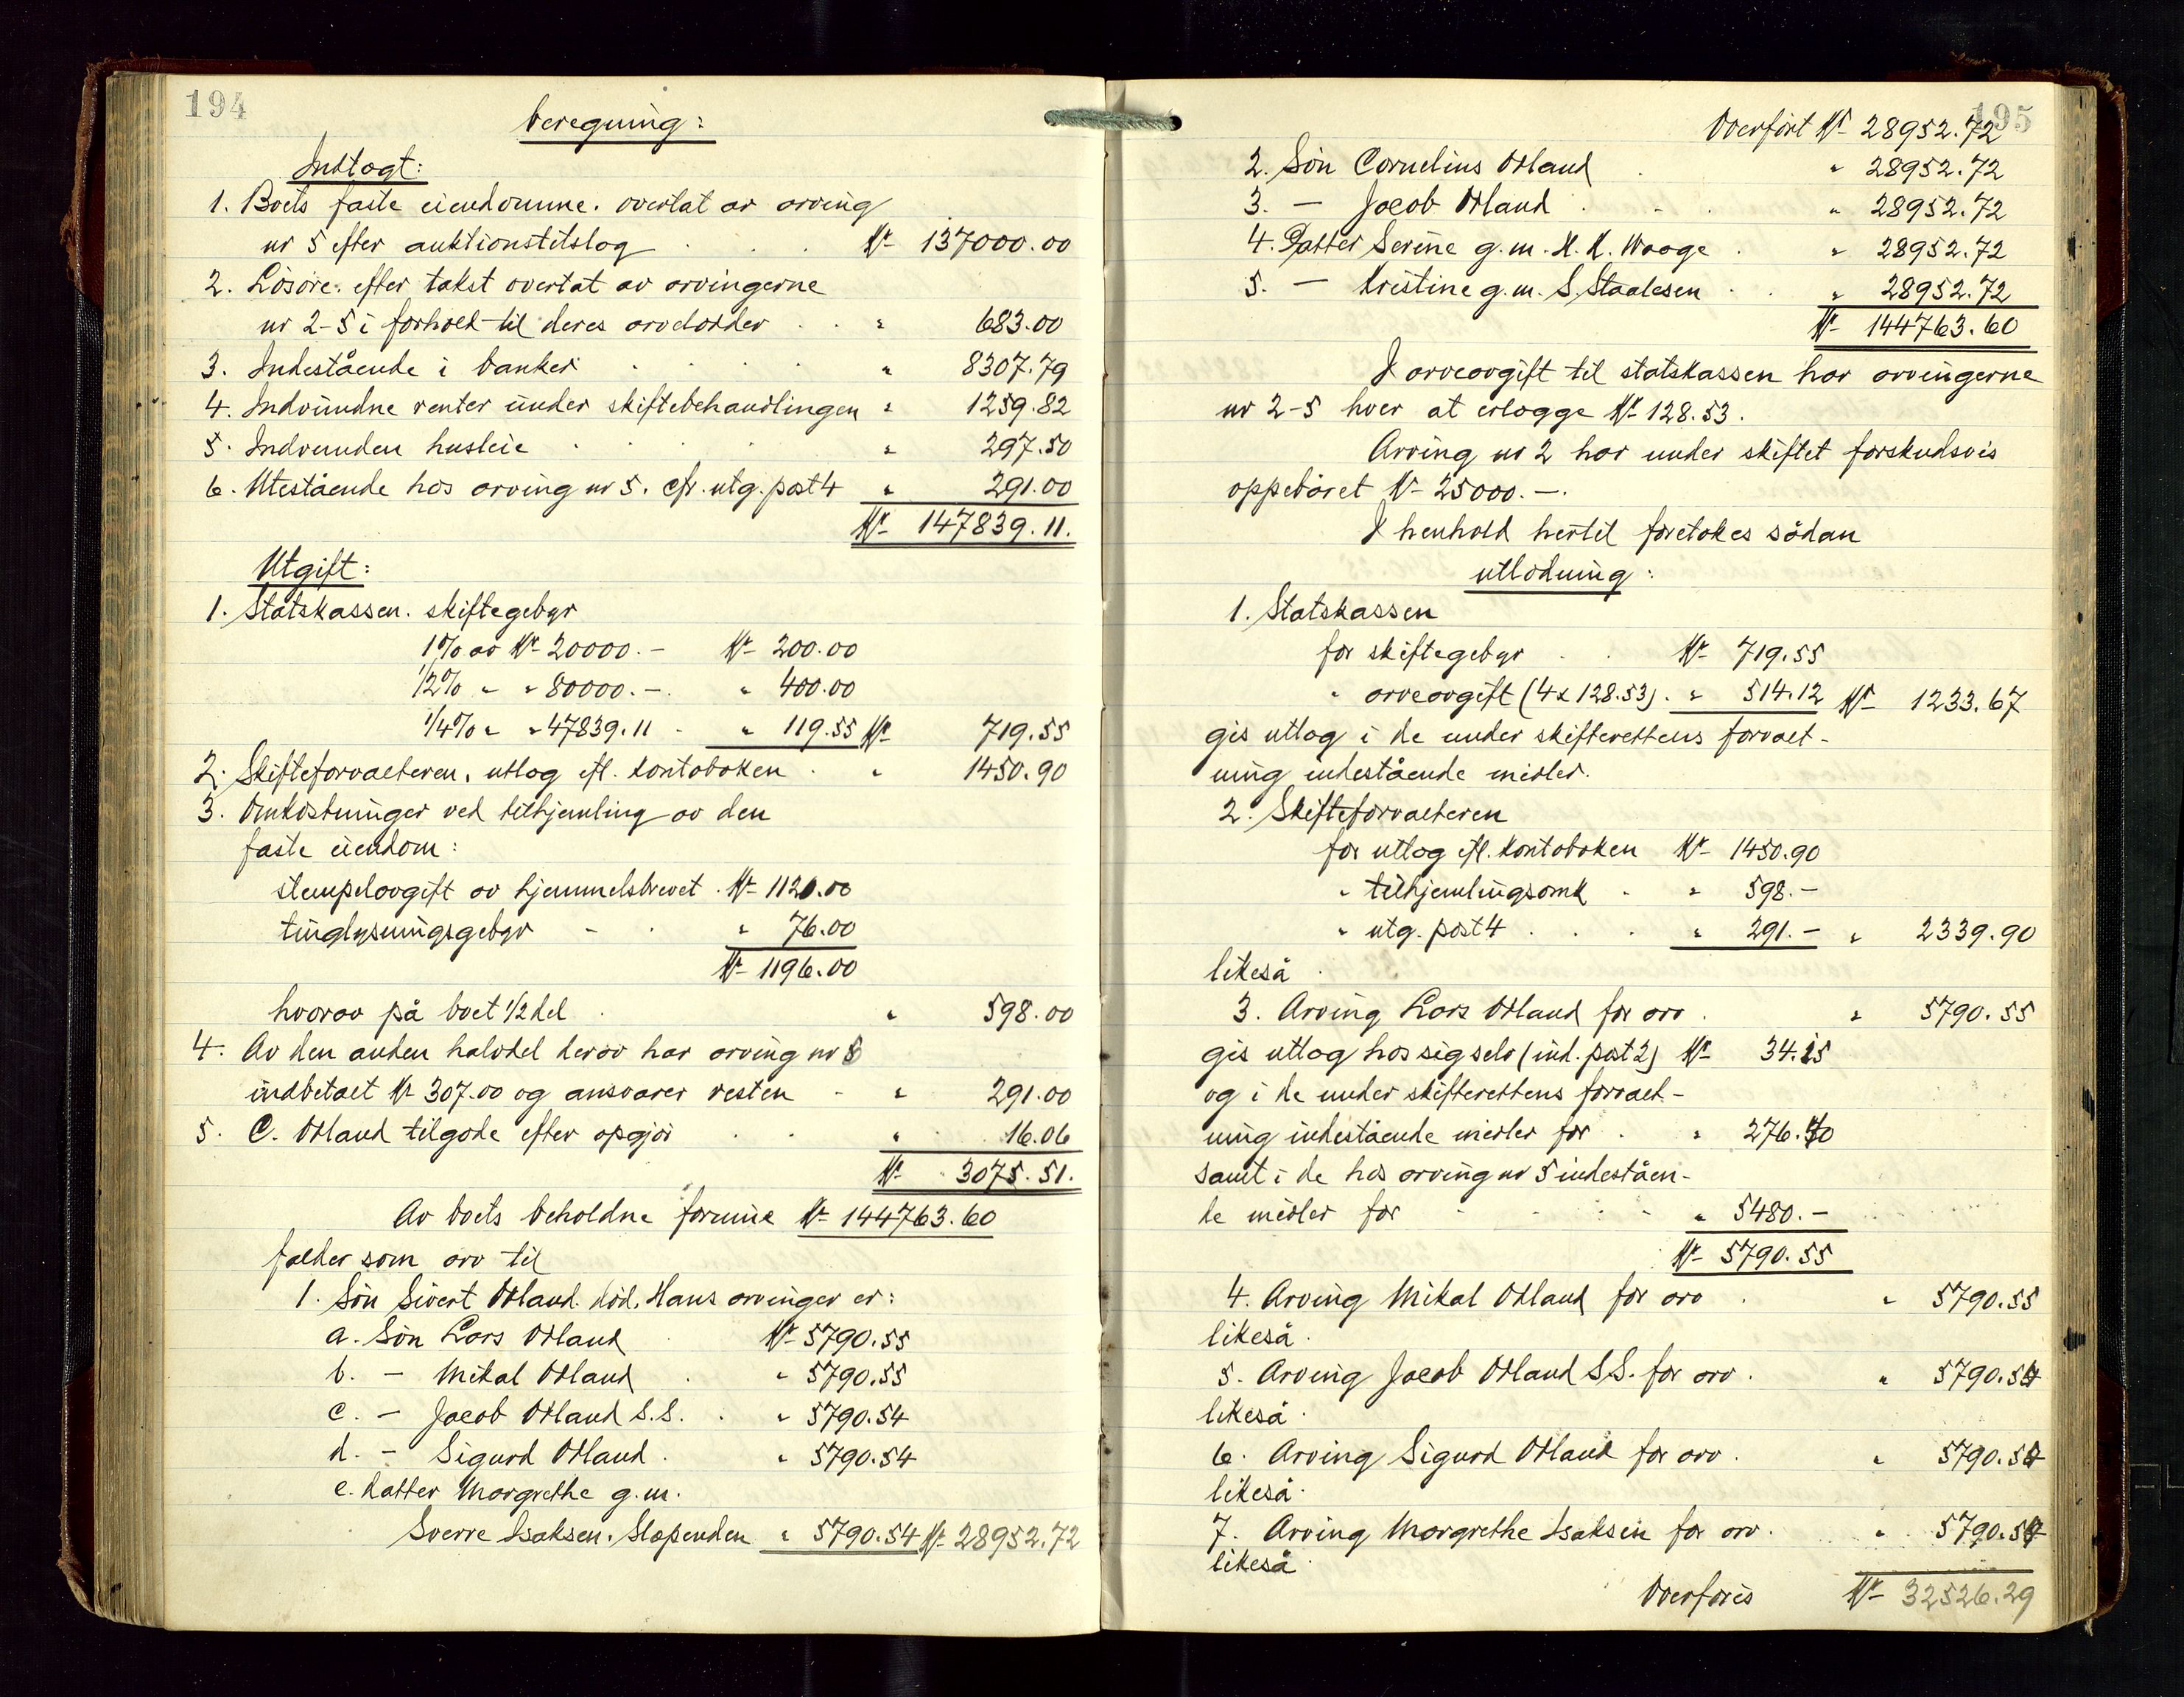 194
beregning:
Indtægt:
1. Boets faste eiendomme. overtat av arving
nr 5 efter auktionstilslag . . . Kr 137000.00
2. Løsøre. efter takst overtat av arvingerne
nr 2-5 i forhold til deres arvelodder . . " 683.00
3. Indestående i banker . . . . " 8307.79
4. Indvundne renter under skiftebehandlingen " 1259.82
5. Indvunden husleie . . . . " 297.50
6. Utestående hos arving nr 5. cfr. utg. post 4 " 291.00
Kr 147839.11.
Utgift:
1. Statskassen. skiftegebyr
1% av Kr 20000.- Kr 200.00
1/2% " " 80000.-. " 400.00
1/4% " " 47839.11 - " 119.55 Kr 719.55
2. Skifteforvalteren. utlæg efl. kontoboken . " 1450.90
3. Omkostninger ved tilhjemling av den
faste eiendom:
stempelavgift av hjemmelsbrevet . Kr 1120.00
tinglysningsgebyr - . " 76.00
Kr 1196.00
hvorav på boet 1/2 del . " 598.00
4. Av den anden halvdel derav har arving nr 5
indbetalt Kr 307.00 og ansvarer resten - " 291.00
5. C. Otland tilgode efter opgjør . . " 16.06
Kr 3075.51.
Av boets beholdne formue Kr 144763.60
falder som arv til
1. Søn Sivert Otland. død. Hans arvinger er:
a. Søn Lars Otland Kr 5790.55
b. - Mikal Otland . " 5790.55
c. - Jacob Otland S.S. . " 5790.54
d. - Sigurd Otland . " 5790.54
e. datter Margrethe g.m.
Sverre Isaksen. Slependen " 5790.54 Kr 28952.72
195
Overført Kr 28952.72
2. Søn Cornelius Otland . " 28952.72
3. - Jacob Otland . - . " 28952.72
4. Datter Serine g.m. K. K. Waage . " 28952.72
5. - Kristine g.m. S. Staalesen . . " 28952.72
Kr 144763.60
I arveavgift til statskassen har arvingerne
nr 2-5 hver at erlægge Kr 128.53.
Arving nr 2 har under skiftet forskudsvis
oppebåret Kr 25000.-.
I henhold hertil foretokes sådan
utlodning:
1. Statskassen
for skiftegebyr . . Kr 719.55
" arveavgift (4 x 128.53). " 514.12 Kr 1233.67
gis utlæg i de under skifterettens forvalt-
ning indestående midler.
2. Skifteforvalteren
for utlæg efl. kontoboken Kr 1450.90
" tilhjemlingsomk . " 598.-
" utg. post 4 . . . " 291.- " 2339.90
likeså .
3. Arving Lars Otland for arv . " 5790.55
gis utlæg hos sig selv (ind. post 2) Kr 34.15
og i de under skifterettens forvalt-
ning indestående midler for . " 276.40
samt i de hos arving nr 5 indeståen-
de midler for - - : - " 5480.-
Kr 5790.55
4. Arving Mikal Otland for arv . " 5790.55
likeså.
5. Arving Jacob Otland S.S. for arv . " 5790.54
likeså.
6. Arving Sigurd Otland for arv . " 5790.54
likeså.
7. Arving Margrethe Isaksen for arv . " 5790.54
likeså.
Overføres Kr 32526.29